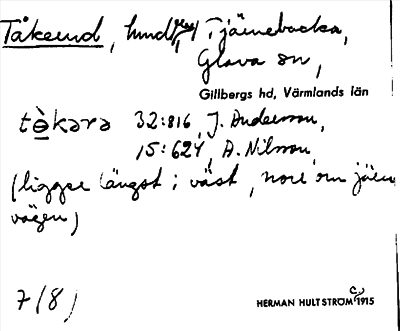 Tåkerud, hmd, Tjärnebacka,
Glava sn,
Gillbergs hd, Värmlands län
tò̱kərə 32:816, J. Anderson,
15:624, A. Nilsson,
(ligger längst i väst, norr om järn
vägen)
7(8)
HERMAN HULTSTRÖM 1915